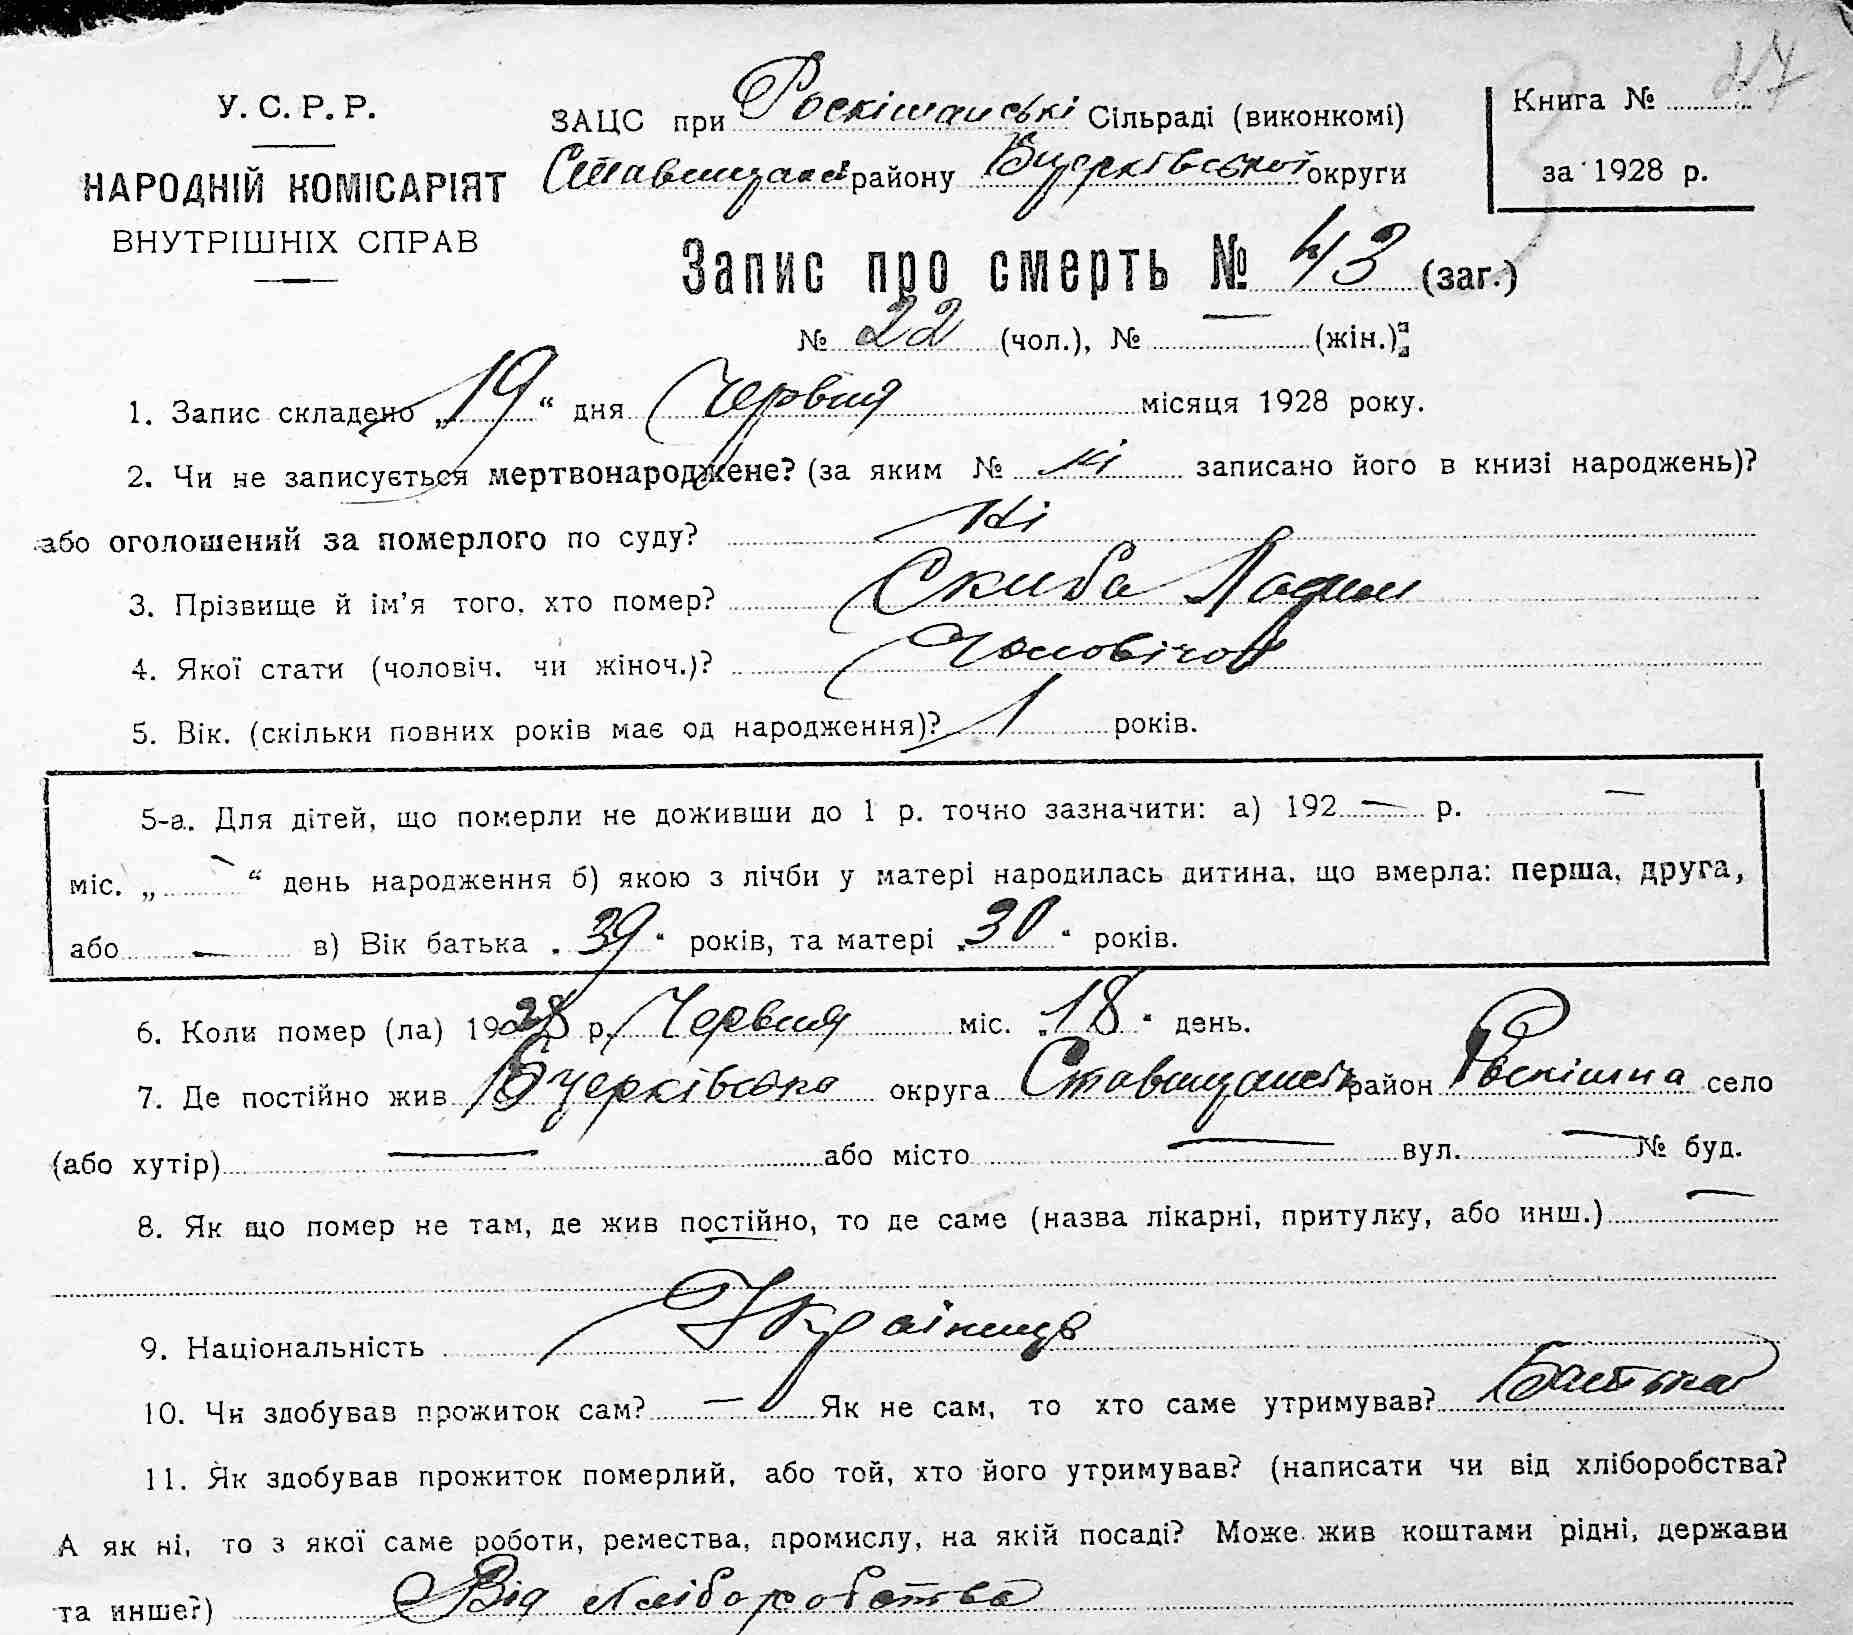 27
У. С. Р. Р.
НАРОДНІЙ КОМІСАРІЯТ
ВНУТРІШНІХ СПРАВ
ЗАЦС при Роскішанські Сільраді (виконкомі)
району Бцерківської округи
Книга №
за 1928 р.
Запис про смерть № 43 (заг.)
№ 22 (чол.), № — (жін.)
1. Запис складено „19“ дня Червня місяця 1928 року.
2. Чи не записується мертвонароджене? (за яким № ні записано його в книзі народжень)?
або оголошений за померлого по суду? Ні
3. Прізвище й ім'я того, хто помер? Скиба
4. Якої стати (чоловіч. чи жіноч.)? Чоловічої
5. Вік. (скільки повних років має од народження)? 1 років.
5-а. Для дітей, що померли не доживши до 1 р. точно зазначити: а) 192 — р. —
міс. „ — “ день народження б) якою з лічби у матері народилась дитина, що вмерла: перша, друга,
або — в) Вік батька „39“ років, та матері „30“ років.
6. Коли помер (ла) 1928 р. Червня міс. „18“ день.
7. Де постійно жив Бцерківська округа Ставищанськ район Роскішна село
(або хутір) — або місто — вул. — № буд.
8. Як що помер не там, де жив постійно, то де саме (назва лікарні, притулку, або инш.) —
9. Національність Українець
10. Чи здобував прожиток сам? — Як не сам, то хто саме утримував? Батько
11. Як здобував прожиток померлий, або той, хто його утримував? (написати чи від хліборобства?
А як ні, то з якої саме роботи, ремества, промислу, на якій посаді? Може жив коштами рідні, держави
та инше?) Від хліборобства